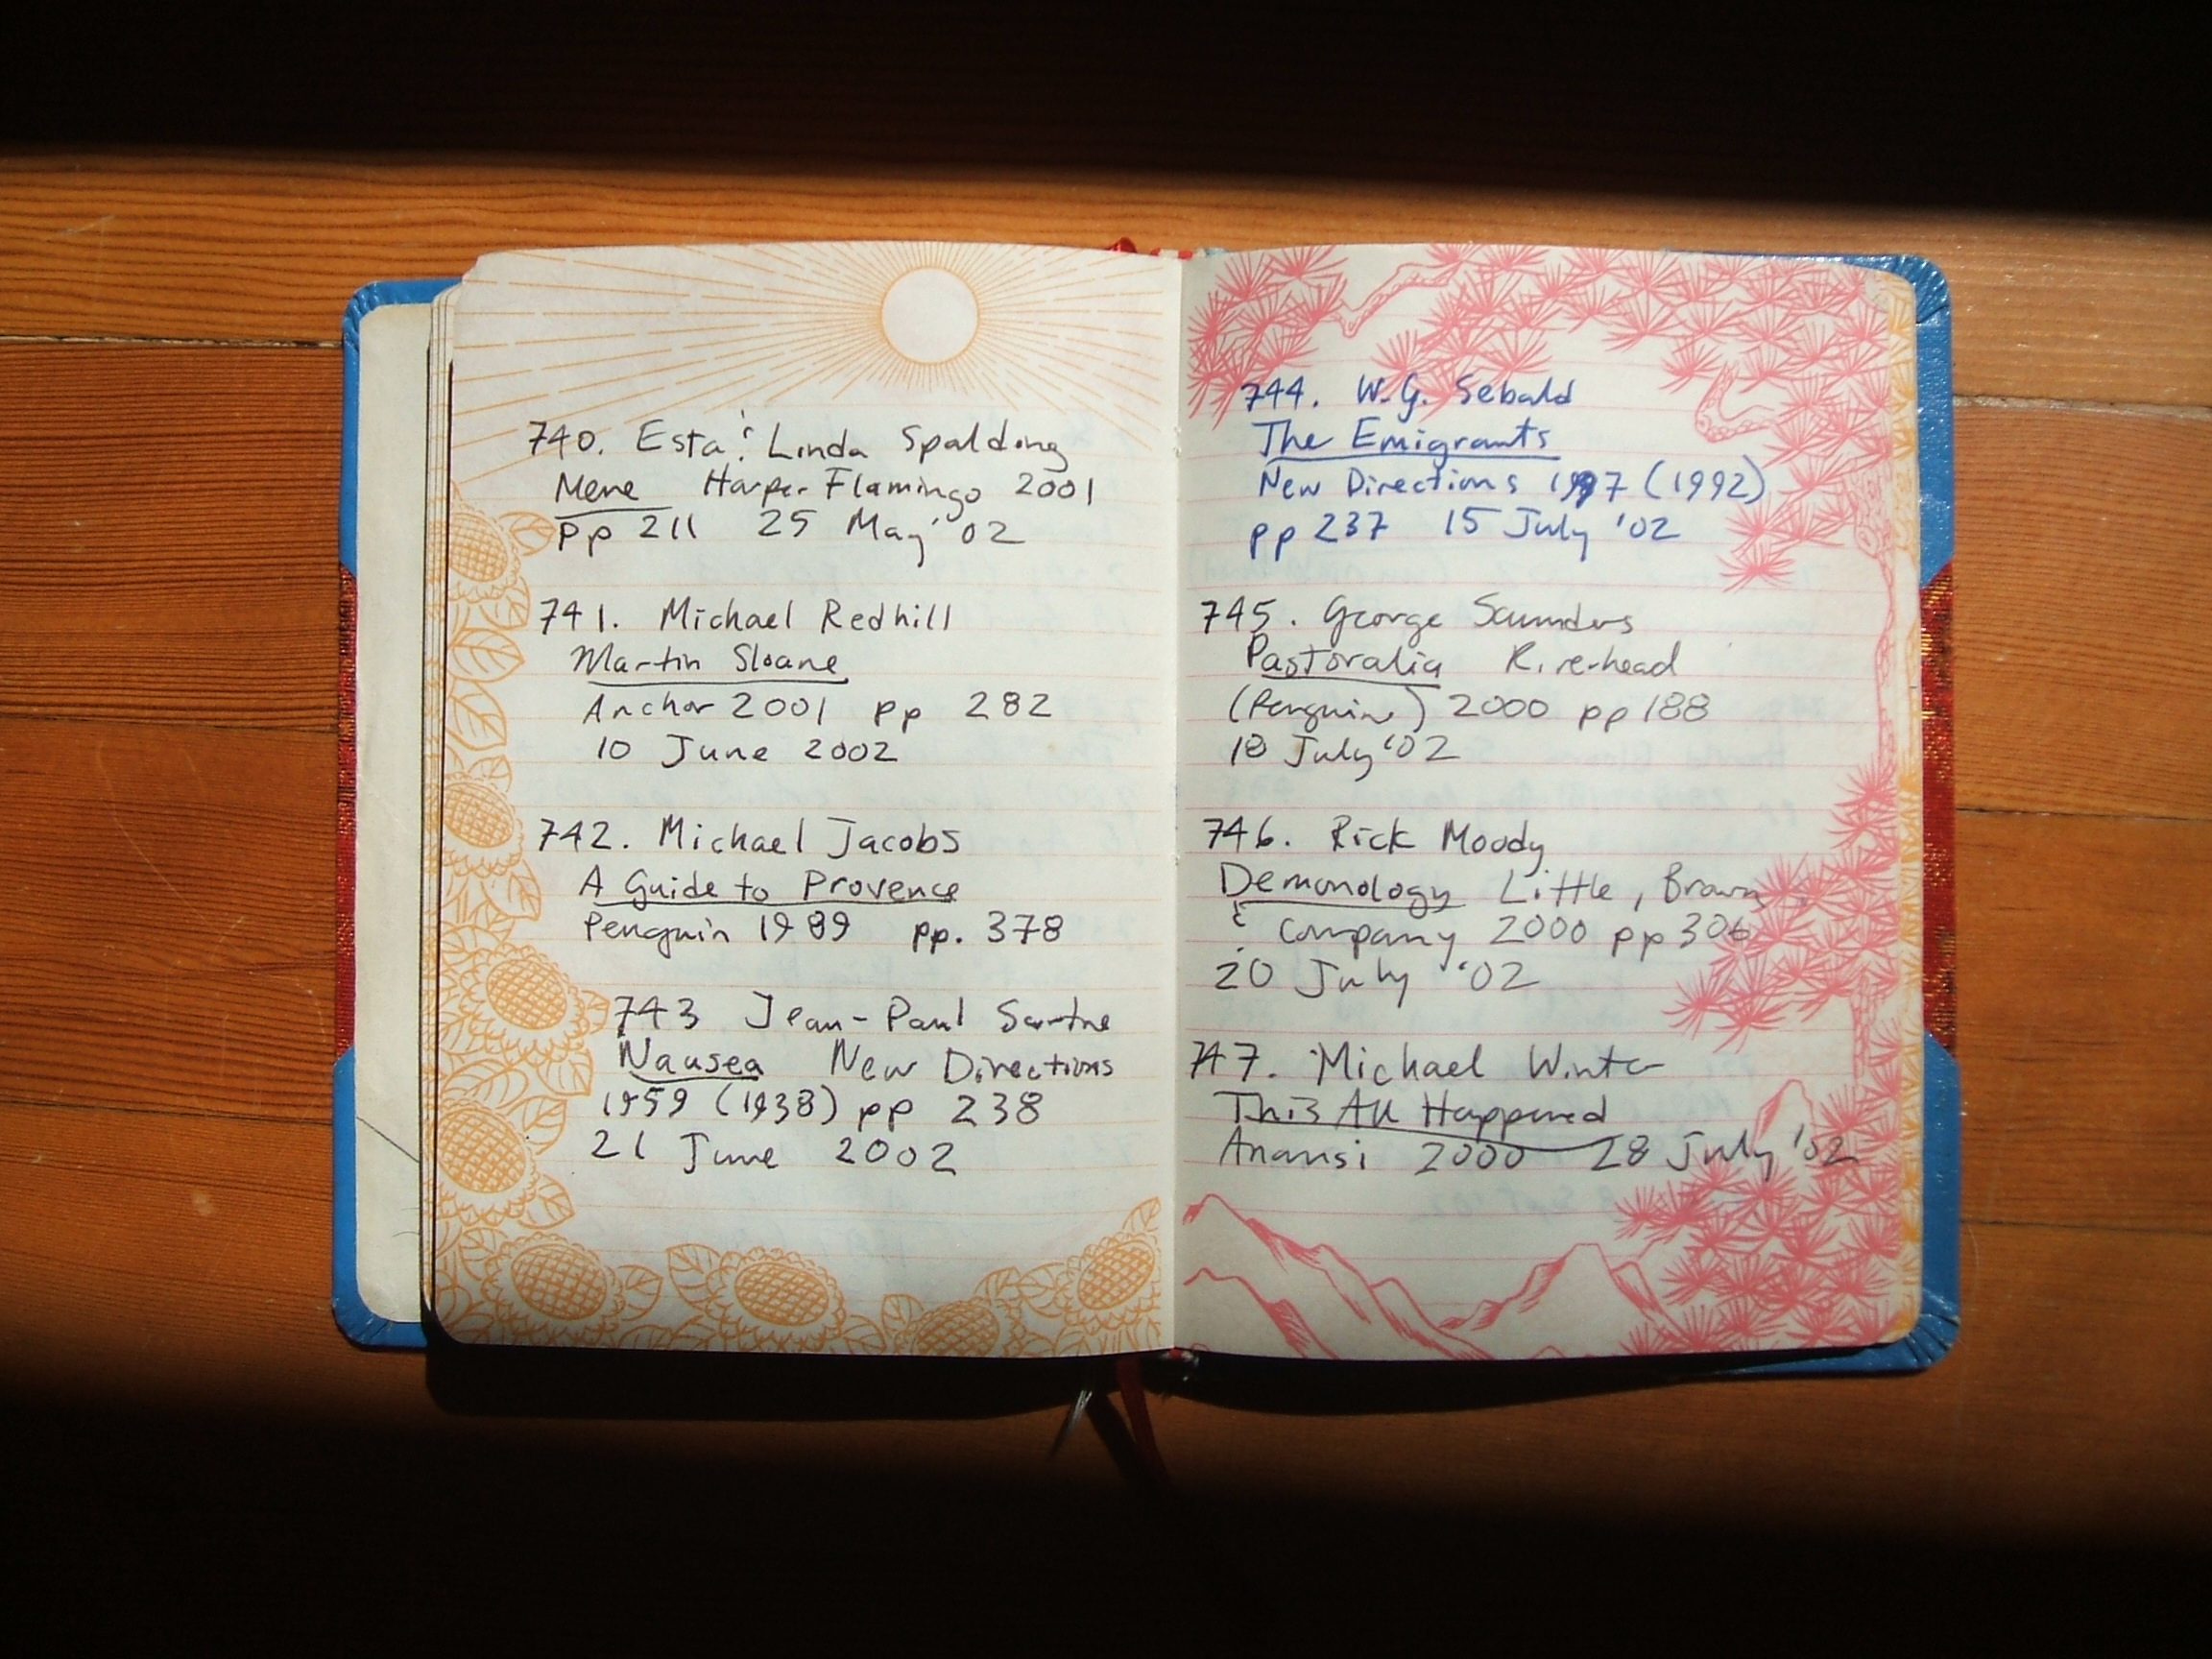 740. Esta & Linda Spalding
Mere Harper Flamingo 2001
pp 211 25 May '02
741. Michael Redhill
Martin Sloane
Anchor 2001 pp 282
10 June 2002
742. Michael Jacobs
A Guide to Provence
Penguin 1989 pp. 378
743 Jean-Paul Sartre
Nausea New Directions
1959 (1938) pp 238
21 June 2002
744. W.G. Sebald
The Emigrants
New Directions 1997 (1992)
pp 237 15 July '02
745. George Saunders
Pastoralia Riverhead
(Penguin) 2000 pp 188
18 July '02
746. Rick Moody
Demonology Little, Brown
& Company 2000 pp 306
20 July '02
747. Michael Winter
This All Happened
Anansi 2000 28 July '02